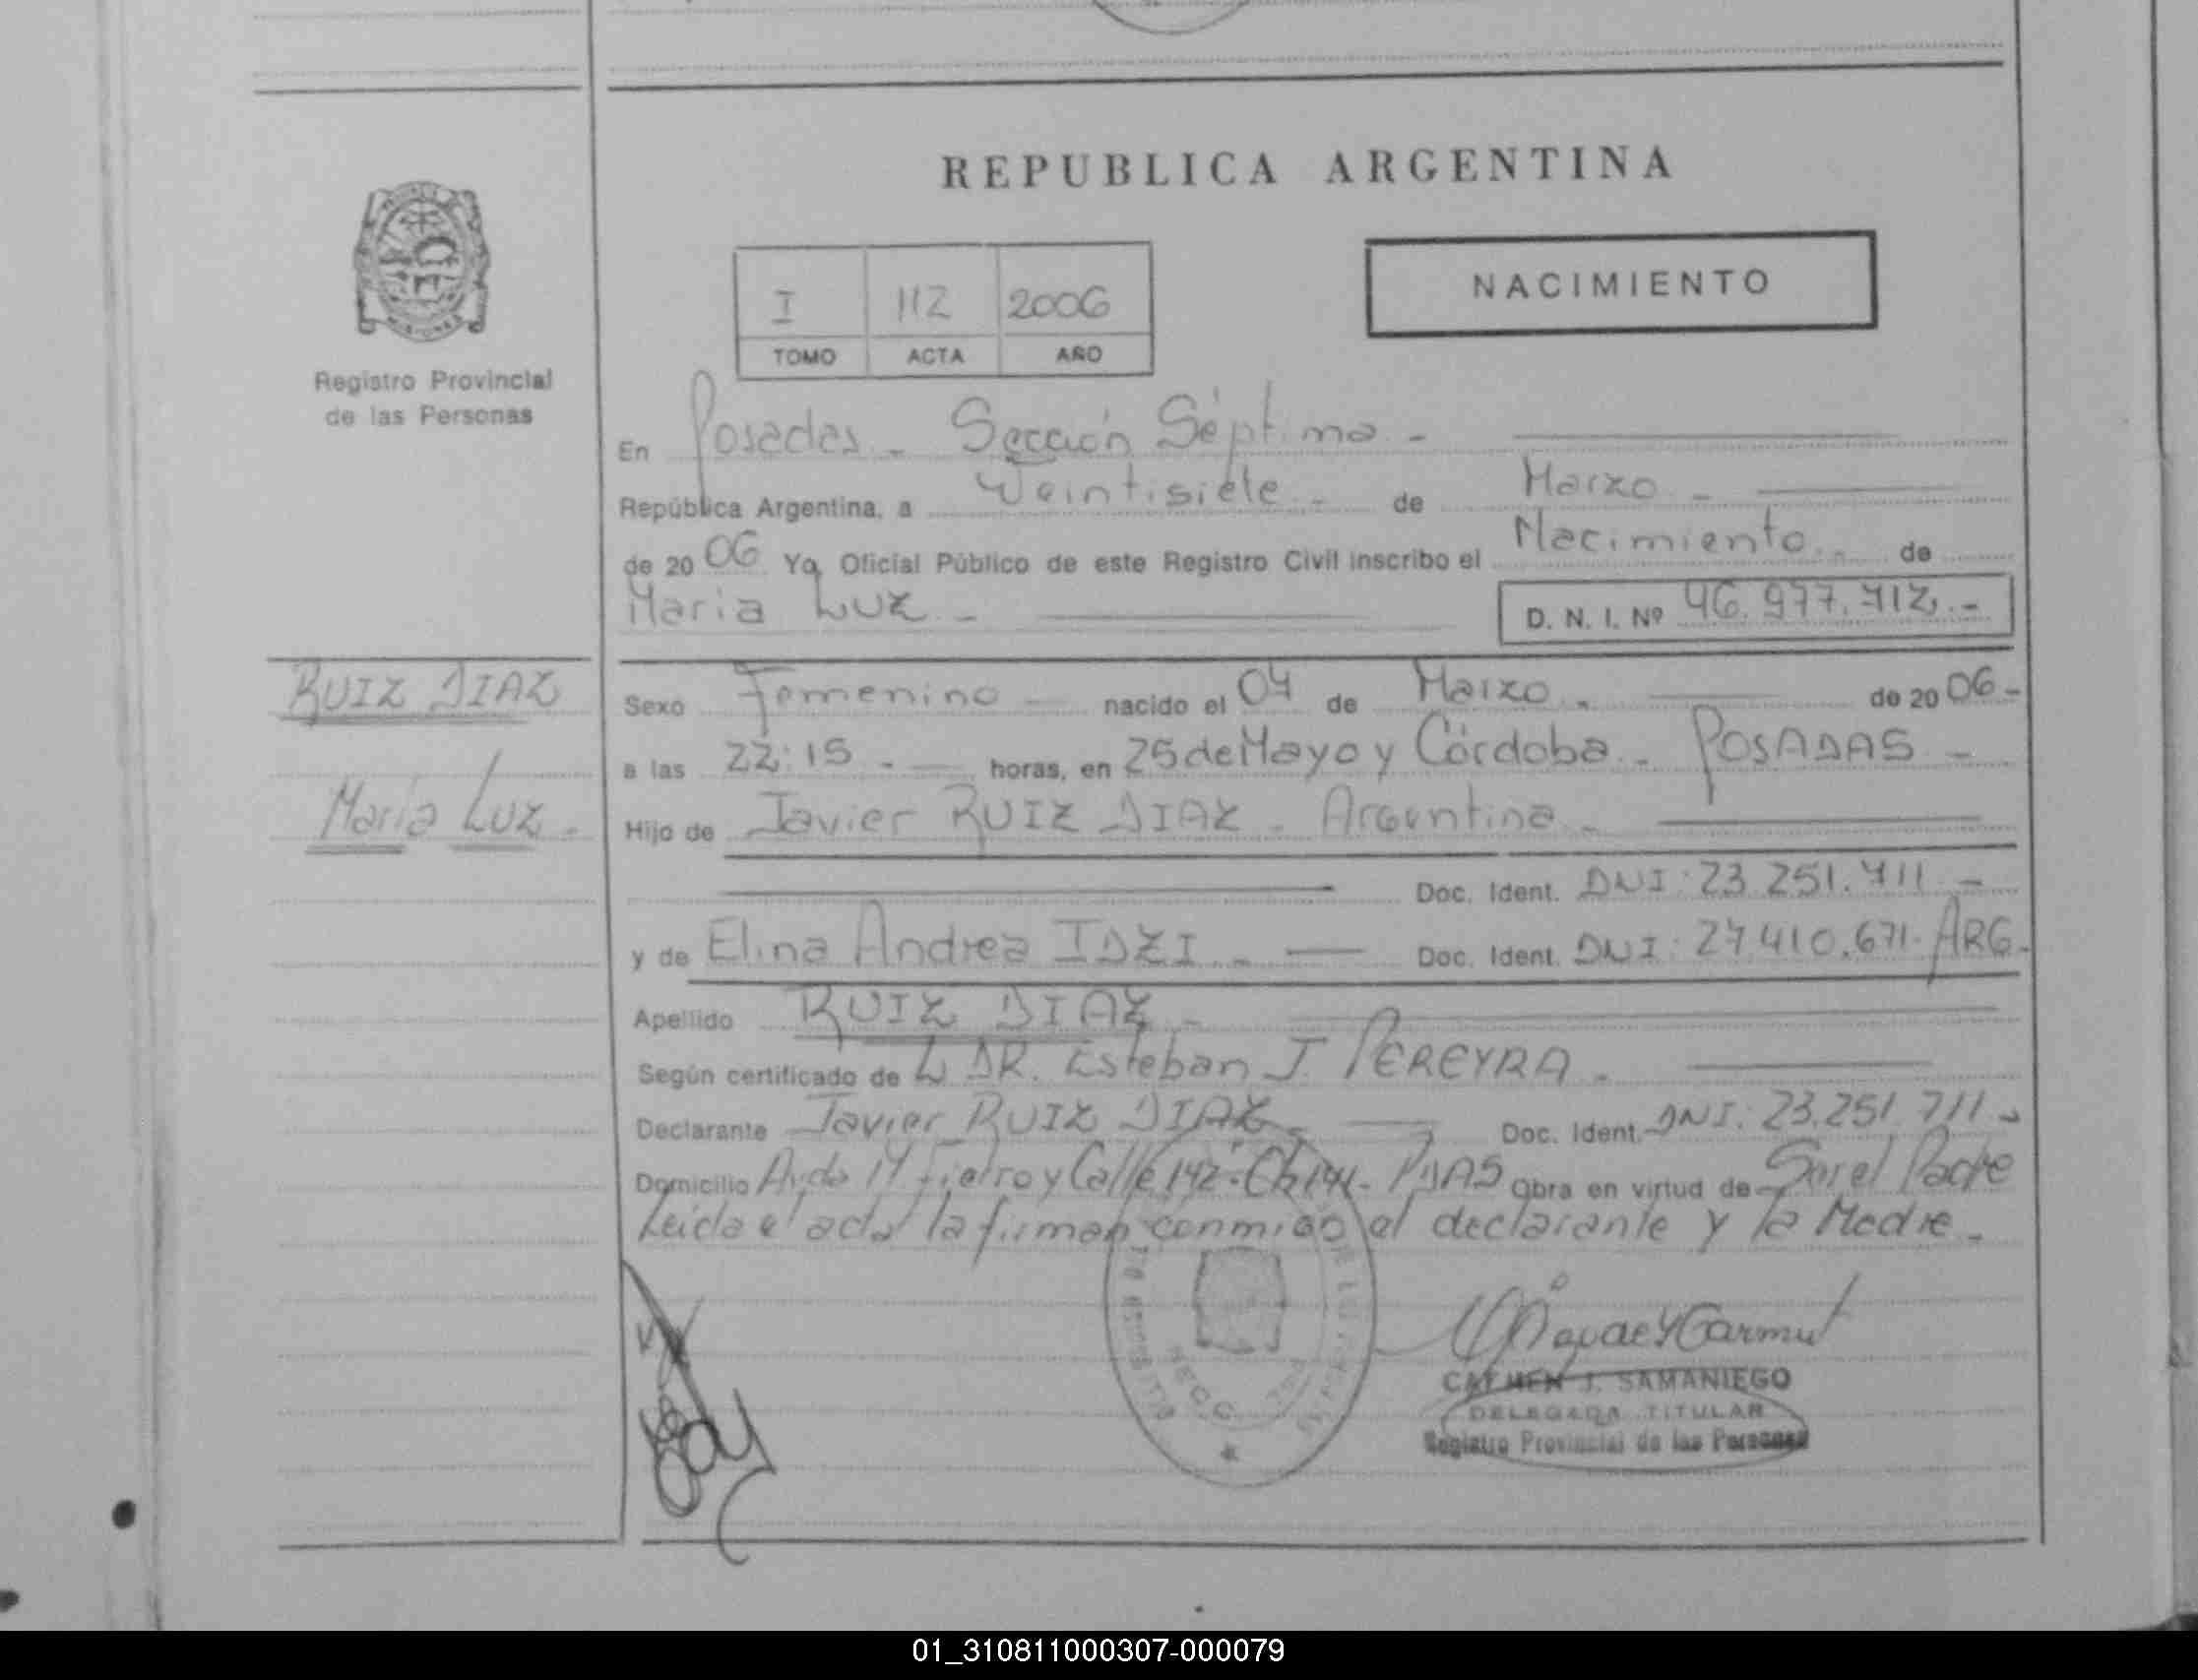 REPUBLICA ARGENTINA
NACIMIENTO
I 112 2006
TOMO ACTA AÑO
MISIONES
Registro Provincial
de las Personas
En Posadas - Sección Séptima -
República Argentina, a Veintisiete - de Marzo -
de 2006 Yo, Oficial Público de este Registro Civil inscribo el Nacimiento - de
María Luz - D. N. I. Nº 46.977.712 -
RUIZ DIAZ
María Luz -
Sexo Femenino nacido el 04 de Marzo - de 2006 -
a las 22:15 - horas, en 25 de Mayo y Córdoba - POSADAS -
Hijo de Javier RUIZ DIAZ - Argentina -
Doc. Ident. DNI: 23.251.711 -
y de Elina Andrea IDZI - Doc. Ident. DNI: 27.410.671 - ARG -
Apellido RUIZ DIAZ -
Según certificado de DR. Esteban J. PEREYRA -
Declarante Javier RUIZ DIAZ - Doc. Ident. DNI: 23.251.711 -
Domicilio M Fierro y Calle 142 - PDAS Obra en virtud de Ser el Padre
Leída el acta la firman conmigo el declarante y la Madre -
SECC.
CARMEN J. SAMANIEGO
DELEGADA TITULAR
Registro Provincial de las Personas
01_310811000307-000079